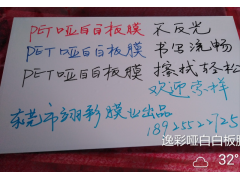 PET哑白白板膜 不反光
PET哑白白板膜 书写流畅
PET哑白白板膜 擦拭轻松
欢迎索样
东莞市翊彩膜业出品
18925522725
逸彩哑白白板膜
32°